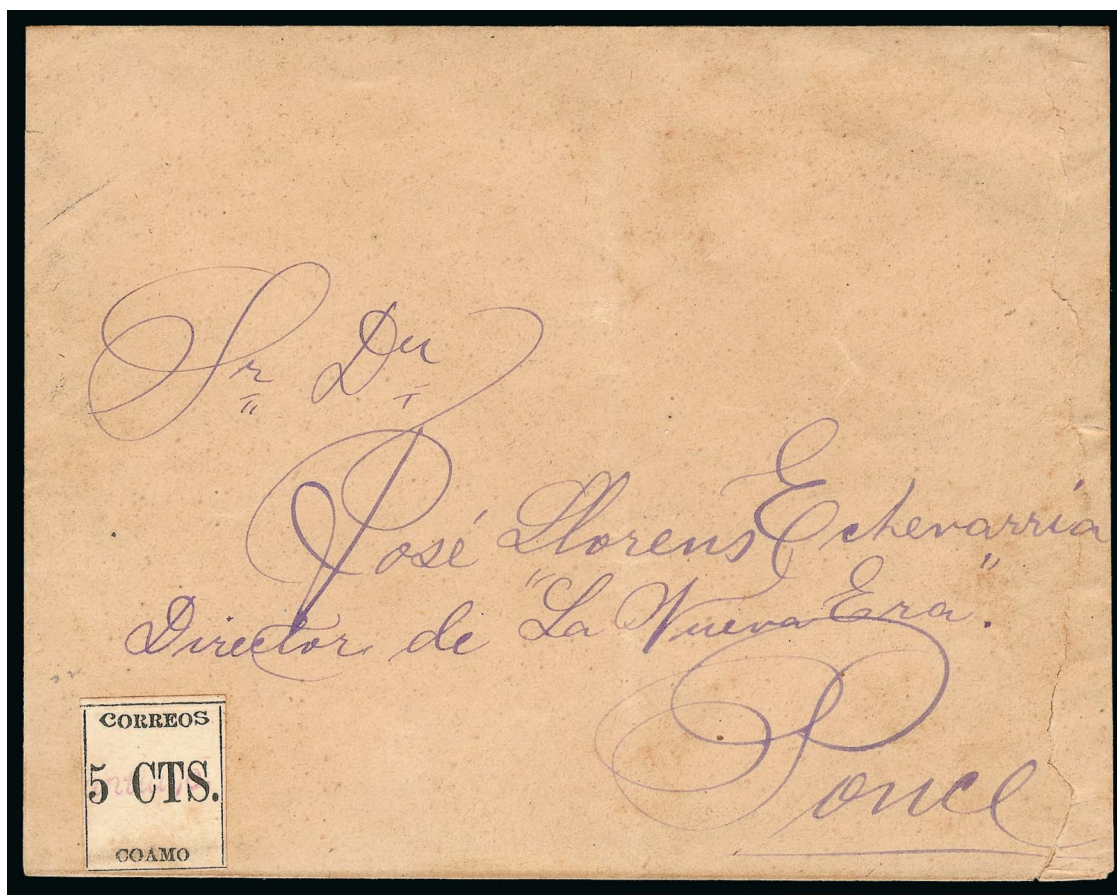 Sr. Dn
José Llorens Echevarría
Director de "La Nueva Era".
Ponce
CORREOS
5 CTS.
COAMO